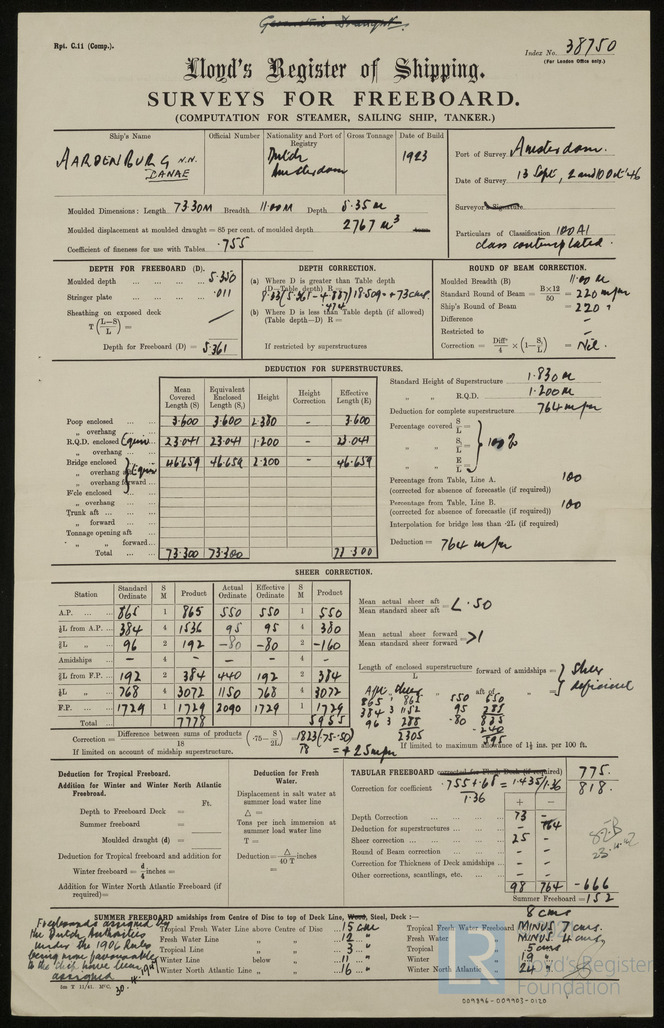 Geometric Draught.
Rpt. C.11 (Comp.).
Index No. 38750
(For London Office only.)
Lloyd's Register of Shipping.
SURVEYS FOR FREEBOARD.
(COMPUTATION FOR STEAMER, SAILING SHIP, TANKER.)
Ship's Name
Official Number
Nationality and Port of Registry
Gross Tonnage
Date of Build
AARDENBURG N.N.
DANAE
Dutch
Amsterdam
1923
Port of Survey Amsterdam.
Date of Survey 13 Sept, 2 and 10 Oct '46
Surveyor's Signature
Particulars of Classification 100A1
class contemplated.
Moulded Dimensions: Length 73.30M Breadth 11.00M Depth 5.35M
Moulded displacement at moulded draught = 85 per cent. of moulded depth 2767 M³
Coefficient of fineness for use with Tables .755
DEPTH FOR FREEBOARD (D).
Moulded depth ... 5.350
Stringer plate ... .011
Sheathing on exposed deck
T (L-S/L) =
Depth for Freeboard (D) = 5.361
DEPTH CORRECTION.
(a) Where D is greater than Table depth
(D—Table depth) R =
8.83(5.361-4.887)18509=+73cms.
.474
(b) Where D is less than Table depth (if allowed)
(Table depth—D) R =
If restricted by superstructures
ROUND OF BEAM CORRECTION.
Moulded Breadth (B) 11.00 M
Standard Round of Beam = B×12/50 = 220 m/m
Ship's Round of Beam = 220 "
Difference –
Restricted to –
Correction = Diffce/4 × (1-S₁/L) = Nil.
DEDUCTION FOR SUPERSTRUCTURES.
Mean Covered Length (S)
Equivalent Enclosed Length (S₁)
Height
Height Correction
Effective Length (E)
Poop enclosed ... 3.600 3.600 2.380 - 3.600
„ overhang ...
R.Q.D. enclosed (Equiv) 23.041 23.041 1.200 - 23.041
„ overhang ...
Bridge enclosed 46.659 46.659 2.200 - 46.659
„ overhang aft Equiv
„ overhang forward
F'cle enclosed ...
„ overhang ...
Trunk aft ...
„ forward ...
Tonnage opening aft
„ „ forward...
Total ... 73.300 73.300 73.300
Standard Height of Superstructure 1.830 M
„ „ R.Q.D. 1.200 M
Deduction for complete superstructure 764 m/m
Percentage covered S/L =
„ „ S₁/L = 100%
„ „ E/L =
Percentage from Table, Line A. 100
(corrected for absence of forecastle (if required))
Percentage from Table, Line B. 100
(corrected for absence of forecastle (if required))
Interpolation for bridge less than ·2L (if required)
Deduction = 764 m/m
SHEER CORRECTION.
Station
Standard Ordinate
S M
Product
Actual Ordinate
Effective Ordinate
S M
Product
A.P. ... 865 1 865 550 550 1 550
⅙L from A.P. ... 384 4 1536 95 95 4 380
⅓L „ 96 2 192 -80 -80 2 -160
Amidships ... - 4 - - - 4 -
⅓L from F.P. ... 192 2 384 440 192 2 384
⅙L „ 768 4 3072 1150 768 4 3072
F.P. ... 1729 1 1729 2090 1729 1 1729
Total ... 7778 5955
Mean actual sheer aft
Mean standard sheer aft = < .50
Mean actual sheer forward
Mean standard sheer forward = >1
Length of enclosed superstructure/L forward of amidships =
„ „ aft of „ =
Sheer
deficient
Aft. sheer
865 1 865 550 550
384 3 1152 95 285
96 3 288 -80 835
2305 -240
595
Correction = Difference between sums of products/18 (·75- S/2L) = 1823/18 (.75-.50)
= +25 m/m
If limited on account of midship superstructure.
If limited to maximum allowance of 1½ ins. per 100 ft.
Deduction for Tropical Freeboard.
Addition for Winter and Winter North Atlantic Freeboard.
Ft.
Depth to Freeboard Deck =
Summer freeboard =
Moulded draught (d) =
Deduction for Tropical freeboard and addition for
Winter freeboard = d/4 inches =
Addition for Winter North Atlantic Freeboard (if required)=
Deduction for Fresh Water.
Displacement in salt water at summer load water line
△ =
Tons per inch immersion at summer load water line
T =
Deduction = △/40 T inches
=
TABULAR FREEBOARD corrected for Flush Deck (if required) 775.
Correction for coefficient .755+.68/1.36 = 1.435/1.36 818.
+ -
Depth Correction ... 73 -
Deduction for superstructures ... - 764
Sheer correction ... 25 -
Round of Beam correction ... - -
Correction for Thickness of Deck amidships ... - -
Other corrections, scantlings, etc. ... - -
98 764 -666
Summer Freeboard = 152
SUMMER FREEBOARD amidships from Centre of Disc to top of Deck Line, Wood, Steel, Deck :—
8 cms
Tropical Fresh Water Line above Centre of Disc ... 15 cm
Fresh Water Line „ „ ... 12 "
Tropical Line „ „ ... 3 "
Winter Line below „ ... 11 "
Winter North Atlantic Line „ „ ... 16 "
Tropical Fresh Water Freeboard MINUS 7 cms.
Fresh Water „ MINUS 4 cms,
Tropical „ 5 cms
Winter „ 19 "
Winter North Atlantic „ 24 "
Freeboards assigned by
the Dutch Authorities
under the 1906 Rules
being more favourable
to the ship have been
assigned
Lloyd's Register
Foundation
LR
009896-009903-0120